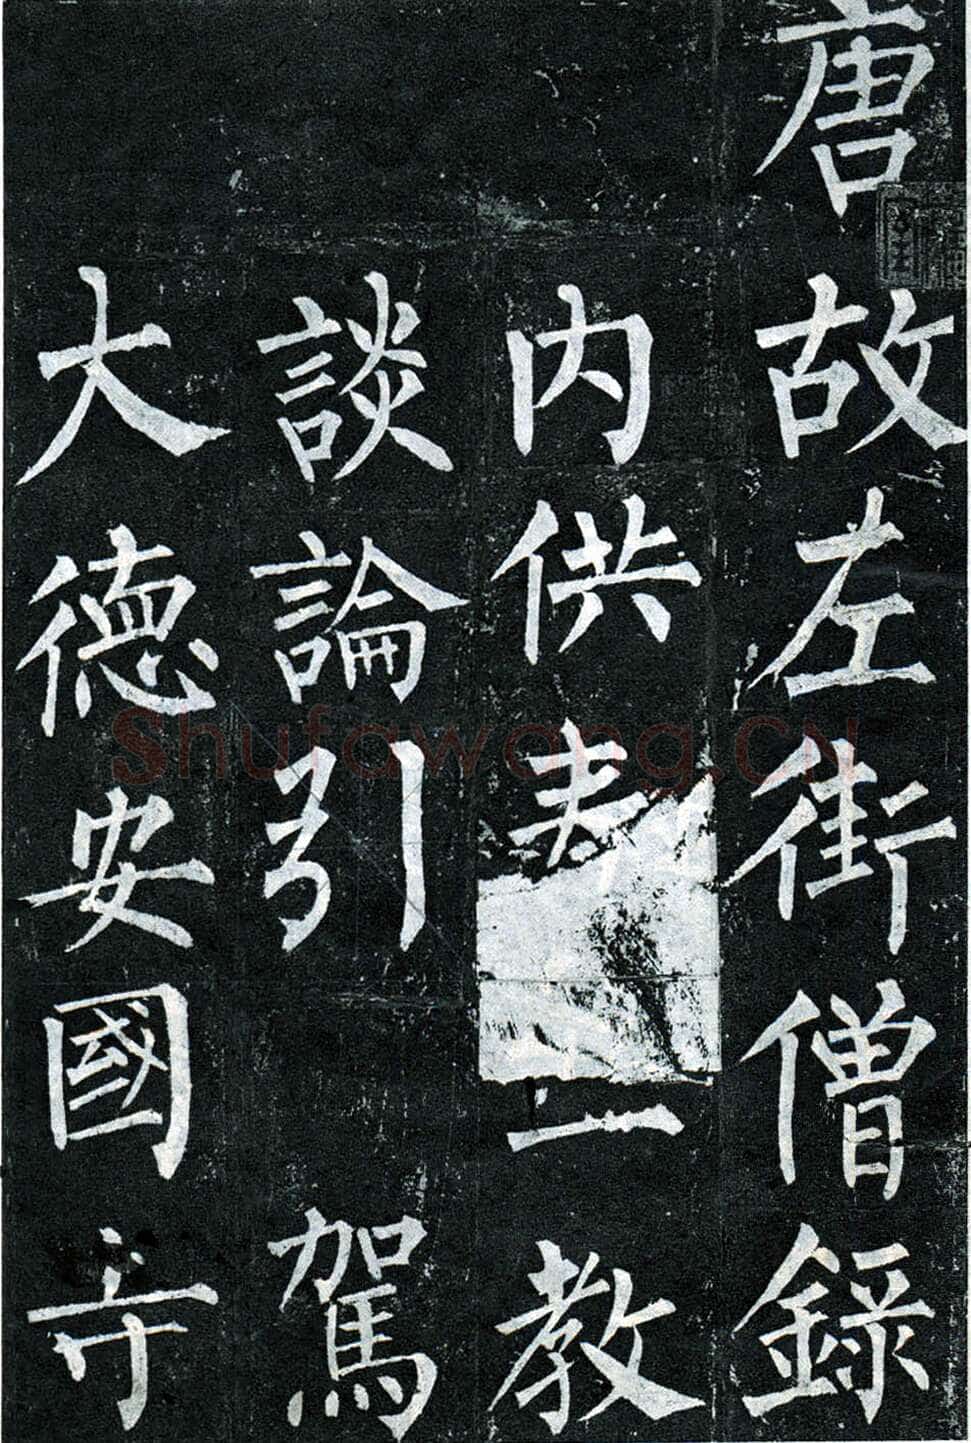 唐故左街僧錄
內供奉
教
談論引駕
大德安國寺
Shufawang.CN